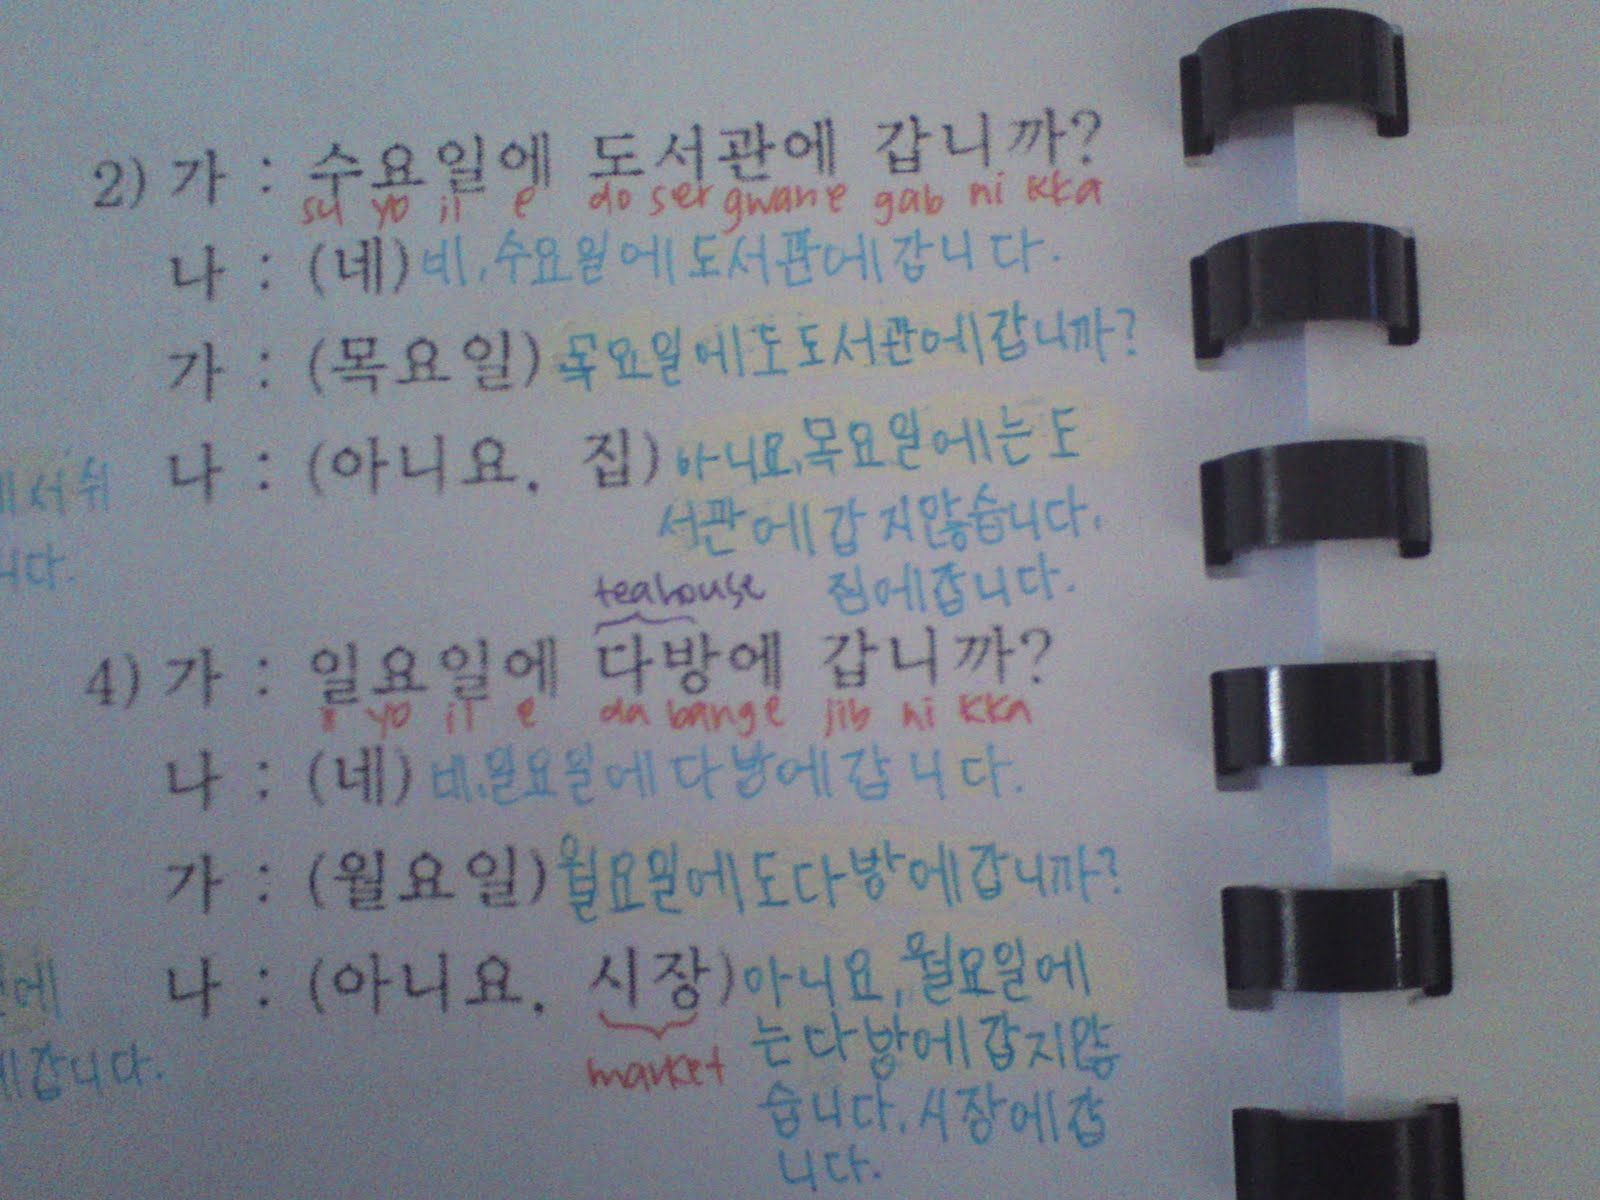 2) 가 : 수요일에 도서관에 갑니까?
su yo il e do ser gwan e gab ni kka
나 : (네) 네, 수요일에 도서관에 갑니다.
가 : (목요일) 목요일에도 도서관에 갑니까?
나 : (아니요, 집) 아니요, 목요일에는 도
서관에 갑 지않습니다.
집에 갑니다.
teahouse
4) 가 : 일요일에 다방에 갑니까?
yo il e da bang e jib ni kka
나 : (네) 네, 일요일에 다방에 갑니다.
가 : (월요일) 월요일에도 다방에 갑니까?
나 : (아니요, 시장) 아니요, 월요일에
는 다방에 갑지않
습니다. 시장에 갑
니다.
market
에서 쉬
니다.
에
갑니다.